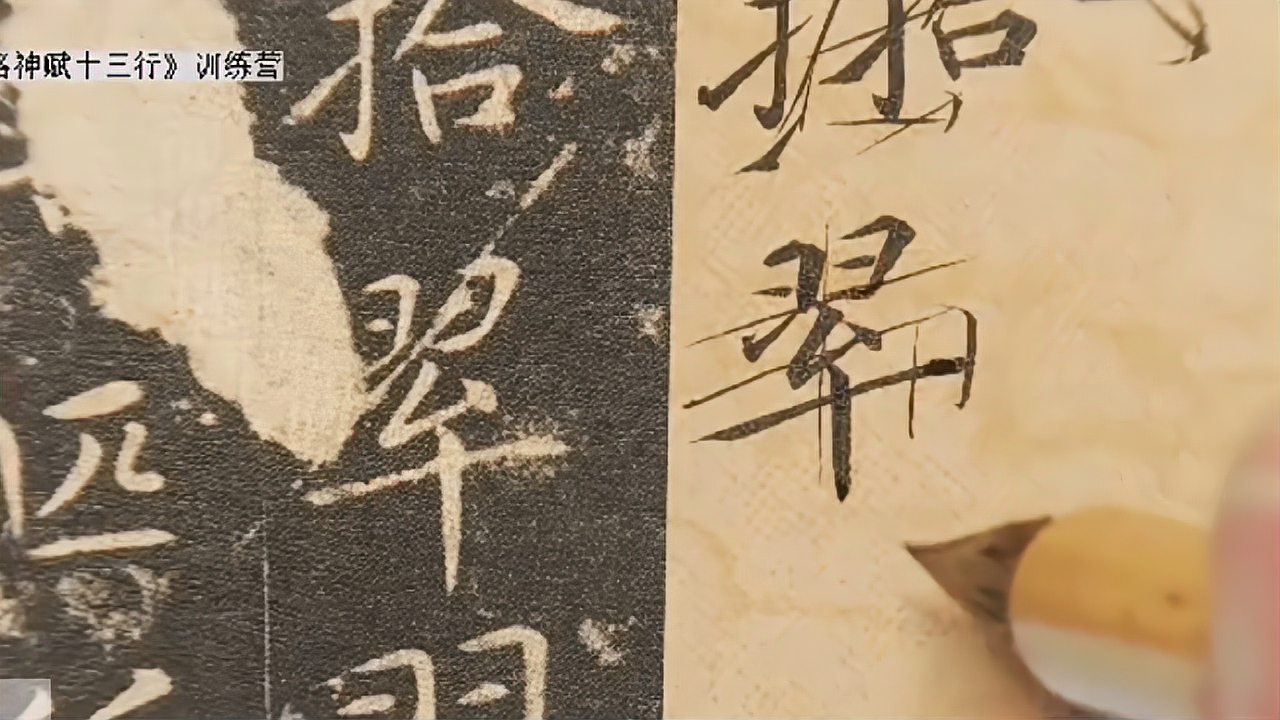 洛神赋十三行》训练营
拾翠羽
匹
拾翠